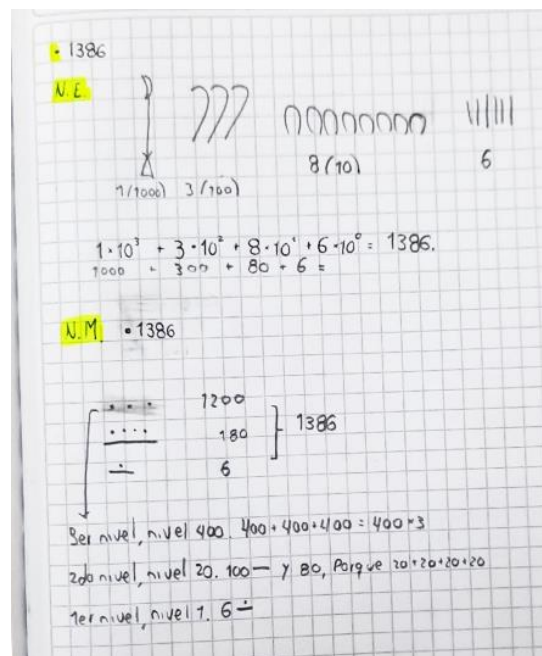 • 1386
N.E.
1(1000) 3(100) 8(10) 6
1·10³ + 3·10² + 8·10¹ + 6·10⁰ = 1386.
1000 + 300 + 80 + 6 =
N.M. • 1386
1200
180
6
1386
3er nivel, nivel 400. 400+400+400 = 400×3
2do nivel, nivel 20. 100— y 80, Porque 20+20+20+20
1er nivel, nivel 1. 6 ∸